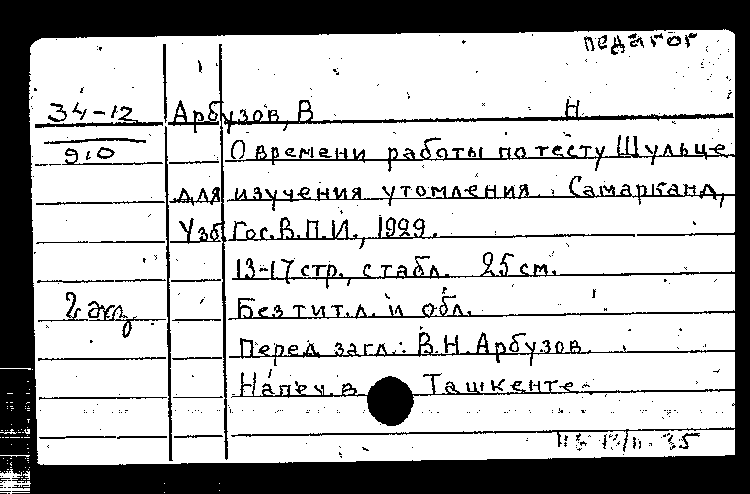 педагог
34-12 Арбузов, В Н
9.0 О времени работы по тесту Шульце
для изучения утомления. Самарканд,
Узб Гос. В.П.И., 1929.
13-17 стр., с табл. 25 см.
2 экз Без тит. л. и обл.
Перед загл.: В.Н. Арбузов.
Напеч. в Ташкенте.
35